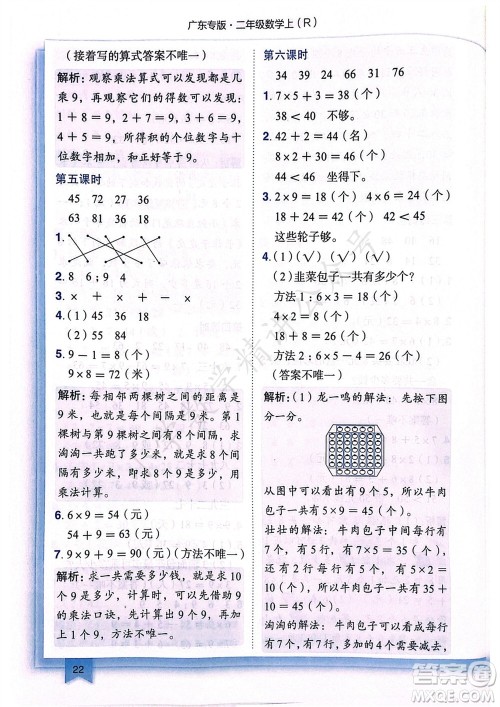 广东专版·二年级数学上(R)
(接着写的算式答案不唯一)
解析:观察乘法算式可以发现都是几
乘9,再观察它们的得数可以发现:
1+8=9,2+7=9,3+6=9,
4+5=9,所得积的个位数字与十
位数字相加,和正好等于9。
第五课时
45 72 27 36
63 81 36 18
1.
2. 8 6;9 4
3. × + + - ×
4. (1) 45 36 54
(2) 54
5. 9-1=8(个)
9×8=72(米)
解析:每相邻两棵树之间的距离是
9米,先求出有几个9米。第1棵
树和第9棵树之间有8个间隔,求
淘淘一共跑了多少米,就是求8个间
隔有多少米,即求8个9是多少,用
乘法计算。
6. 6×9=54(元)
54+9=63(元)
7. 9×9+9=90(元)(方法不唯一)
解析:求一共需要多少钱,就是求10
个9是多少,可以先借助9
的乘法口诀,计算出9个9是多少,
再加1个9。
22
第六课时
34 39 46 21
44 29 31 76
1. 7×5+3=38(个)
38<40 不够。
2. 42+2=44(名)
8×2+30=46(个)
44<46 坐得下。
3. 2×9=18(个) 4×6=24(个)
18+24=42(个) 42<45
这些轮子够。
4. (1)(√)(√)(√)
(2)韭菜包子一共有多少个?
方法1:6×3=18(个)
18+8=26(个)
方法2:6×5-4=26(个)
(答案不唯一)
解析:(1)龙一鸣的解法:先按下图
分一分。
从图中可以看出有9个5,所以牛肉
包子一共有9×5=45(个)。
壮壮的解法:牛肉包子中间每行有
7个,有5行,一共有7×5=35(个);
还剩下2个5,有5×2=10(个),
所以牛肉包子一共有35+
10=45(个)。
淘淘的解法:牛肉包子每行看作有
9个,最后4个需要减去,
答案圈
MXQE.COM